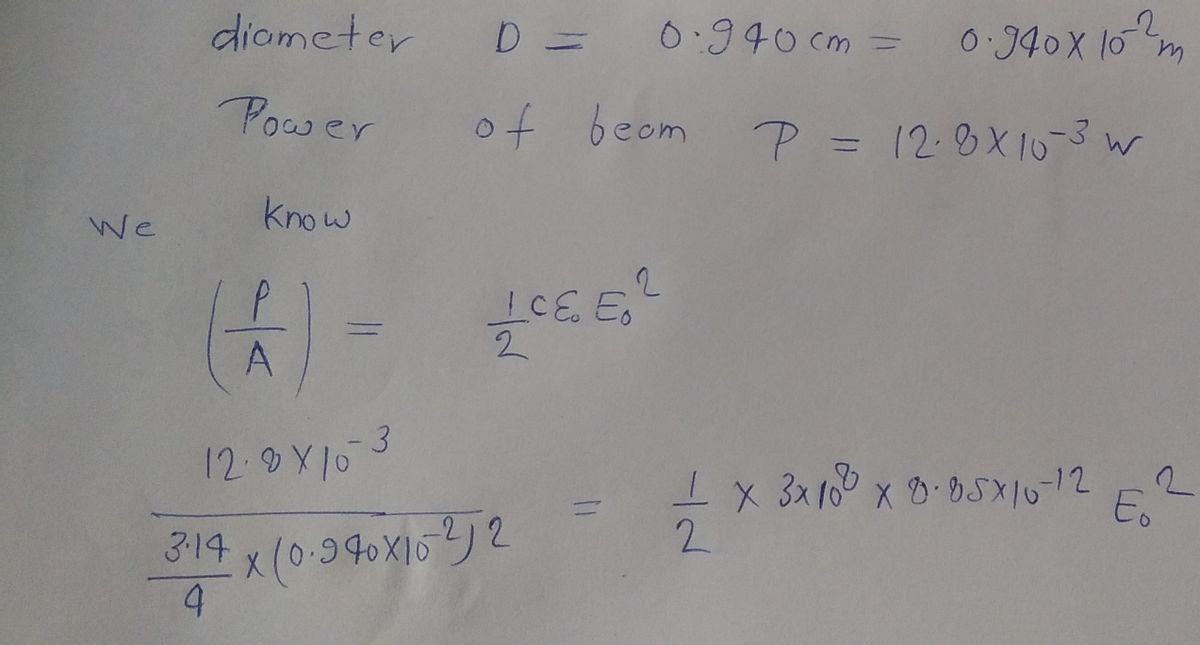 diameter D = 0.940 cm = 0.940 X 10⁻² m
Power of beam P = 12.8 X 10⁻³ W
We know
(P/A) = 1/2 c ε₀ E₀²
12.8 X 10⁻³ / (3.14/4 x (0.940 X 10⁻²)²) = 1/2 x 3x10⁸ x 8.85 x 10⁻¹² E₀²